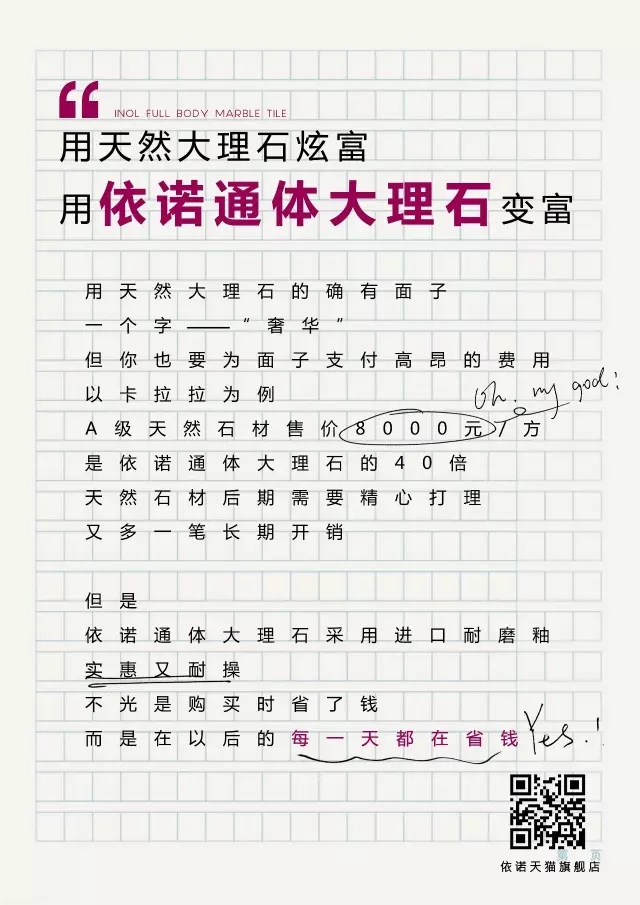 INOL FULL BODY MARBLE TILE
用天然大理石炫富
用依诺通体大理石变富
用天然大理石的确有面子
一个字——“奢华”
但你也要为面子支付高昂的费用
以卡拉拉为例
Oh, my god!
A级天然石材售价8000元/方
是依诺通体大理石的40倍
天然石材后期需要精心打理
又多一笔长期开销
但是
依诺通体大理石采用进口耐磨釉
实惠又耐操
不光是购买时省了钱
而是在以后的每一天都在省钱 Yes.!
第 页
依诺天猫旗舰店